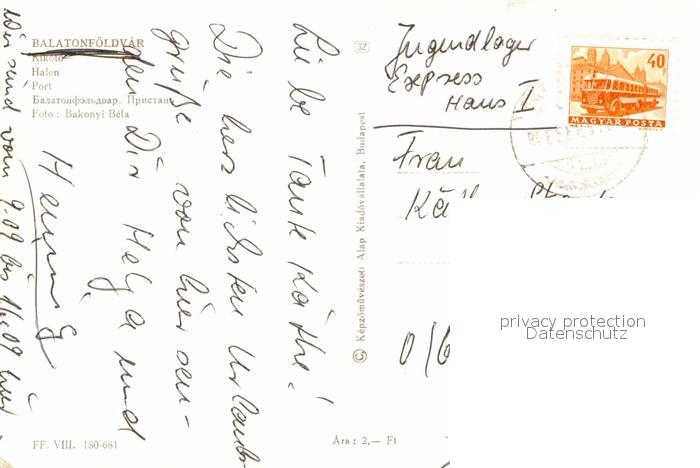 BALATONFÖLDVÁR
Kikötő
Hafen
Port
Балатонфэльдвар. Пристань
Foto : Bakonyi Béla
Liebe Tante Käthe!
Die herzlichsten Urlaubs-
grüße von hier sen-
den Dir Helga und
Henning
Wir sind vom 9.09 bis 16.09 hier
FF. VIII. 180-681
Ára : 2,— Ft
SZ
© Képzőművészeti Alap Kiadóvállalata, Budapest
Jugendlager
Express
Haus I
Frau
40f
MAGYAR POSTA
privacy protection
Datenschutz